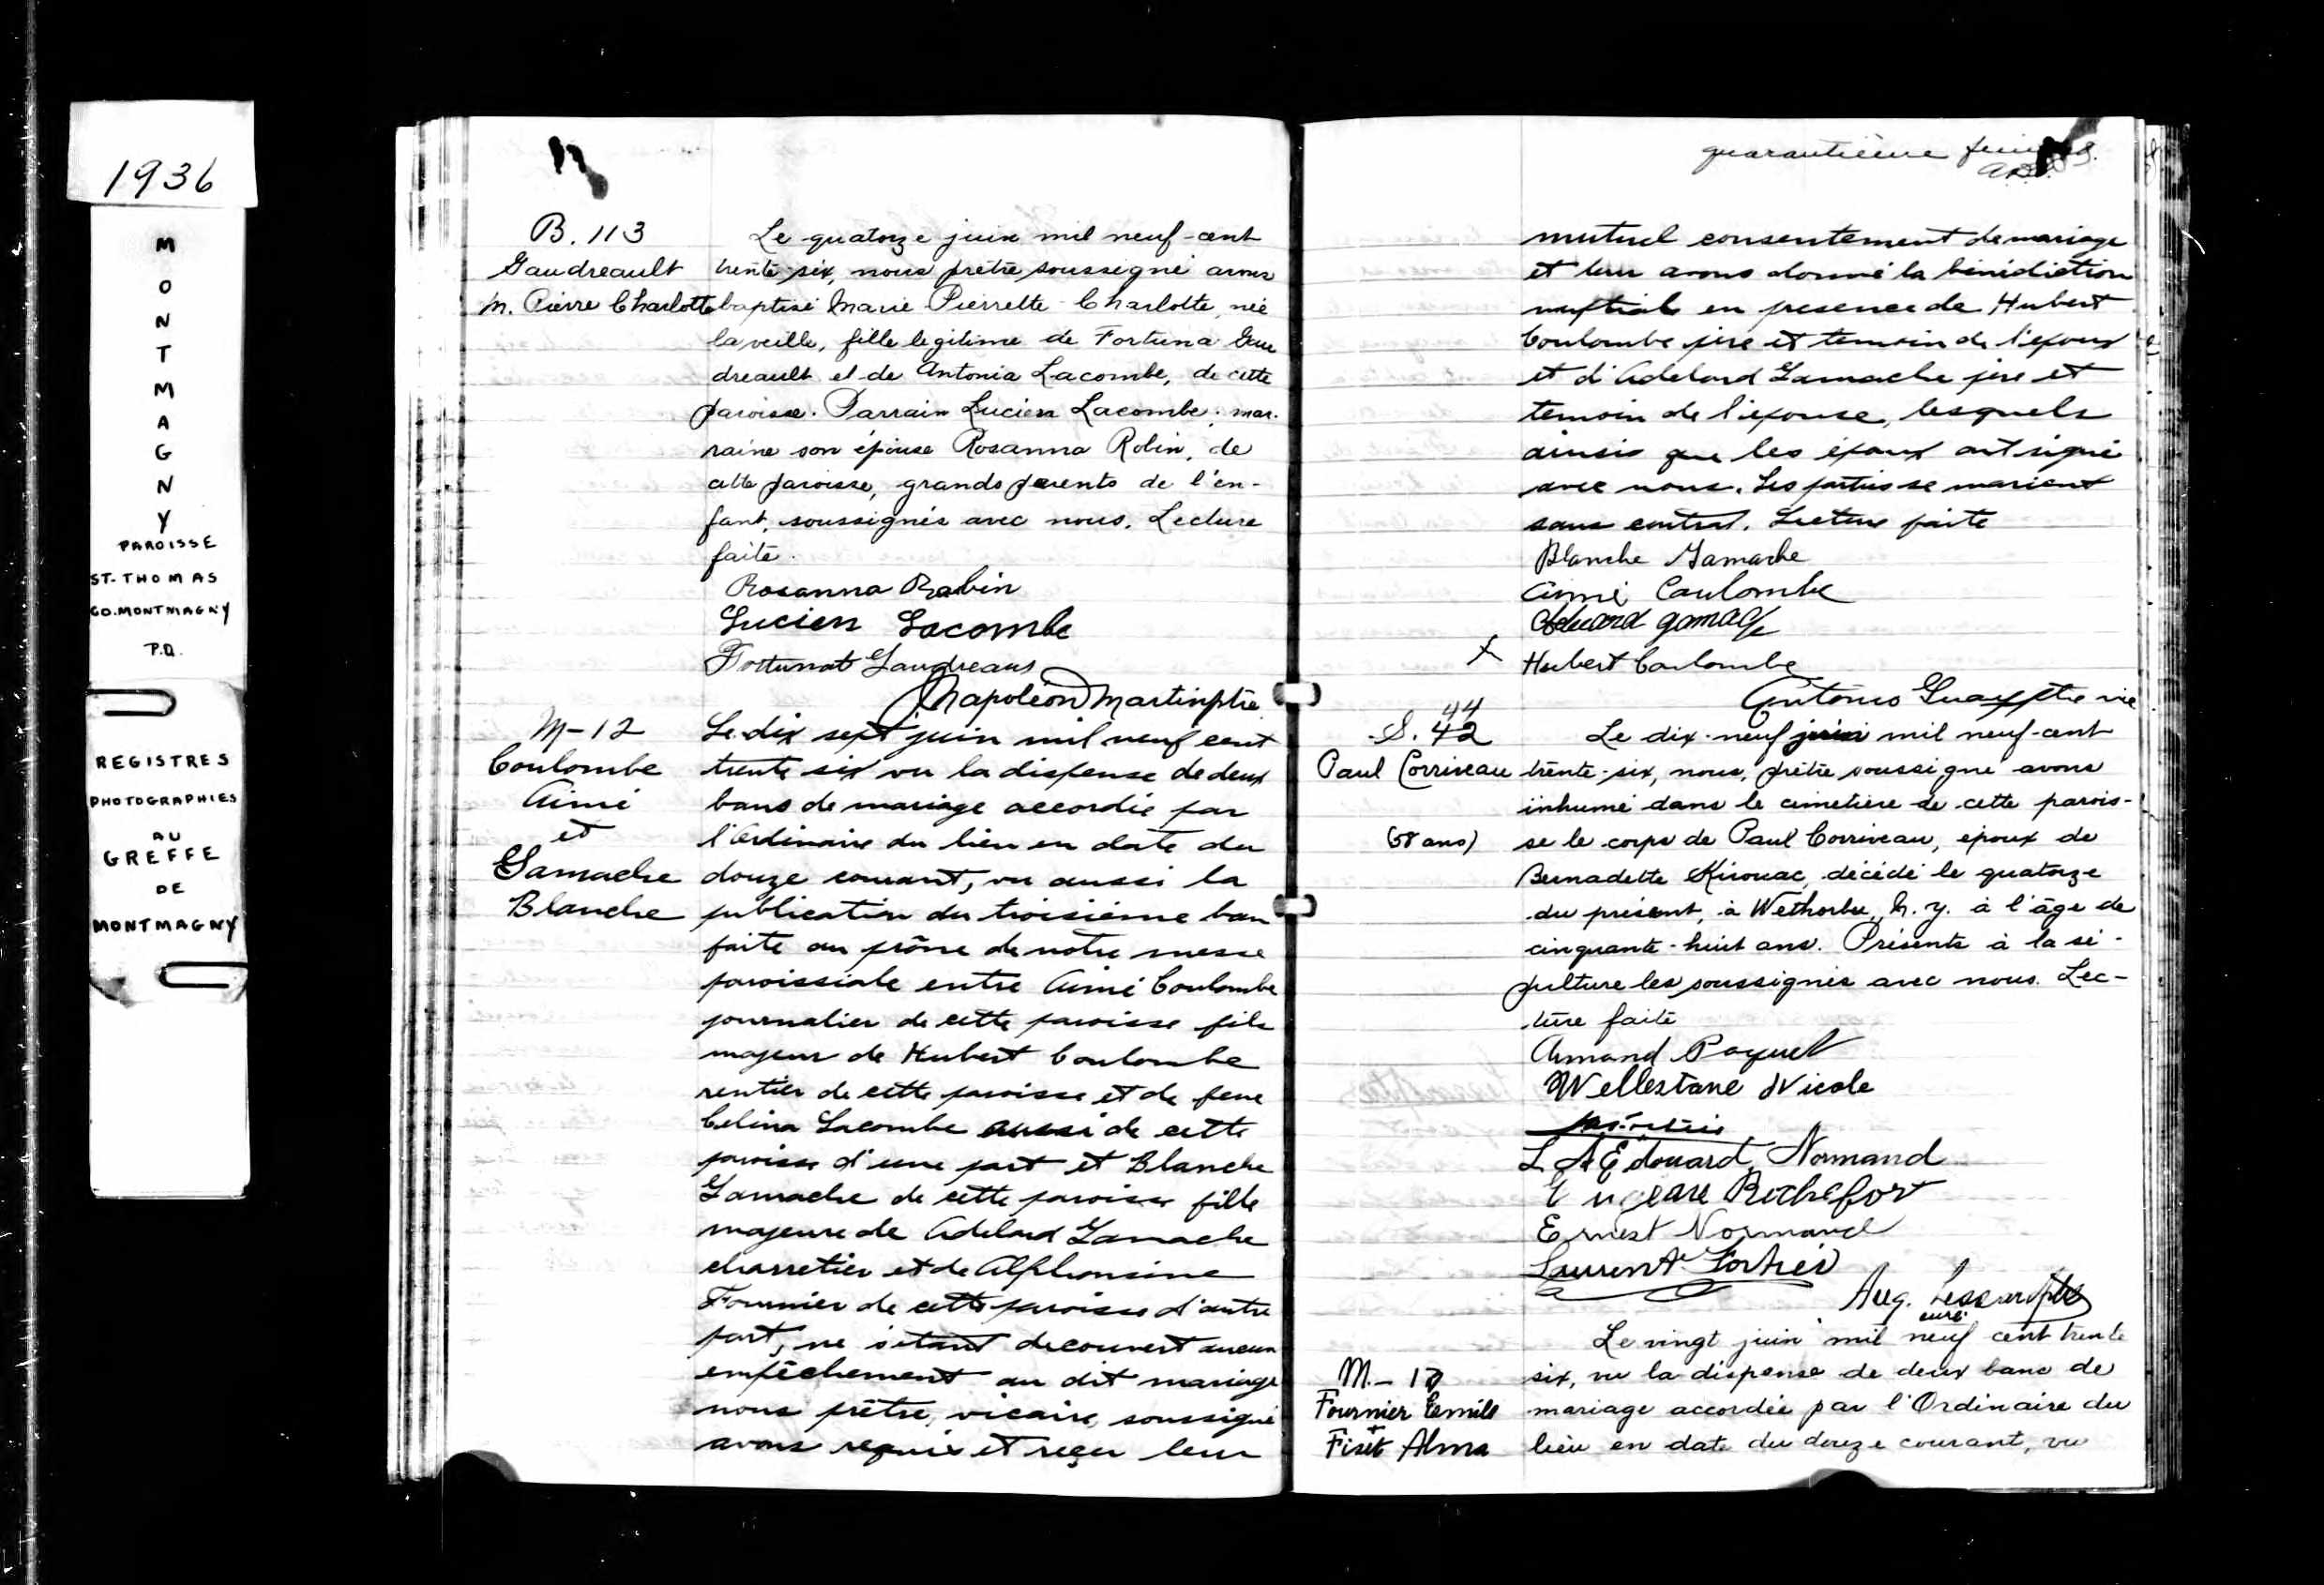 1936
MONTMAGNY
PAROISSE
ST-THOMAS
CO. MONTMAGNY
P.Q.
REGISTRES
PHOTOGRAPHIES
AU
GREFFE
DE
MONTMAGNY
B. 113
Gaudreault
M. Pierre Charlotte
Le quatorze juin mil neuf-cent
trente-six, nous prêtre soussigné avons
baptisé Marie Pierrette Charlotte, née
la veille, fille légitime de Fortuna Gau
dreault et de Antonia Lacombe, de cette
paroisse. Parrain Lucien Lacombe; mar-
raine son épouse Rosanna Robin, de
cette paroisse, grands parents de l'en-
fant, soussignés avec nous. Lecture
faite.
Rosanna Robin
Lucien Lacombe
Fortunat Gaudreau
Napoléon Martin ptre
M-12
Coulombe
Aimé
et
Gamache
Blanche
Le dix sept juin mil neuf cent
trente six vu la dispense de deux
bans de mariage accordée par
l'Ordinaire du lieu en date du
douze courant, vu aussi la
publication du troisième ban
faite au prône de notre messe
paroissiale entre Aimé Coulombe
journalier de cette paroisse fils
majeur de Hubert Coulombe
rentier de cette paroisse et de feue
Celina Lacombe aussi de cette
paroisse d'une part et Blanche
Gamache de cette paroisse fille
majeure de Adelard Gamache
charretier et de Alphonsine
Fournier de cette paroisse d'autre
part, ne s'étant decouvert aucun
empêchement au dit mariage
nous prêtre, vicaire, soussigné
avons requis et reçu leur
quarantième
mutuel consentement de mariage
et leur avons donné la bénédiction
nuptiale en presence de Hubert
Coulombe père et temoin de l'époux
et d'Adelard Gamache père et
temoin de l'épouse, lesquels
ainsi que les époux ont signé
avec nous. Les parties se marient
sans contrat. Lecture faite
Blanche Gamache
Aimé Coulombe
Adelard Gamache
x Hubert Coulombe
Antonio ptre vic
44
S. 42
Paul Corriveau
(58 ans)
Le dix-neuf juin mil neuf-cent
trente-six, nous, prêtre soussigné avons
inhumé dans le cimetière de cette parois-
se le corps de Paul Corriveau, époux de
Bernadette Kirouac, décédé le quatorze
du présent, à Wethorbee, N. Y. à l'âge de
cinquante-huit ans. Présents à la sé-
pulture les soussignés avec nous. Lec-
ture faite
Armand Paquet
Wellestane Nicole
L A Edouard Normand
Rochefort
Ernest Normand
Laurent Fortier
Aug. Lessard ptre
curé
M.-13
Fournier Emile
+
Fiset Alma
Le vingt juin mil neuf cent trente
six, vu la dispense de deux bans de
mariage accordée par l'Ordinaire du
lieu en date du douze courant, vu